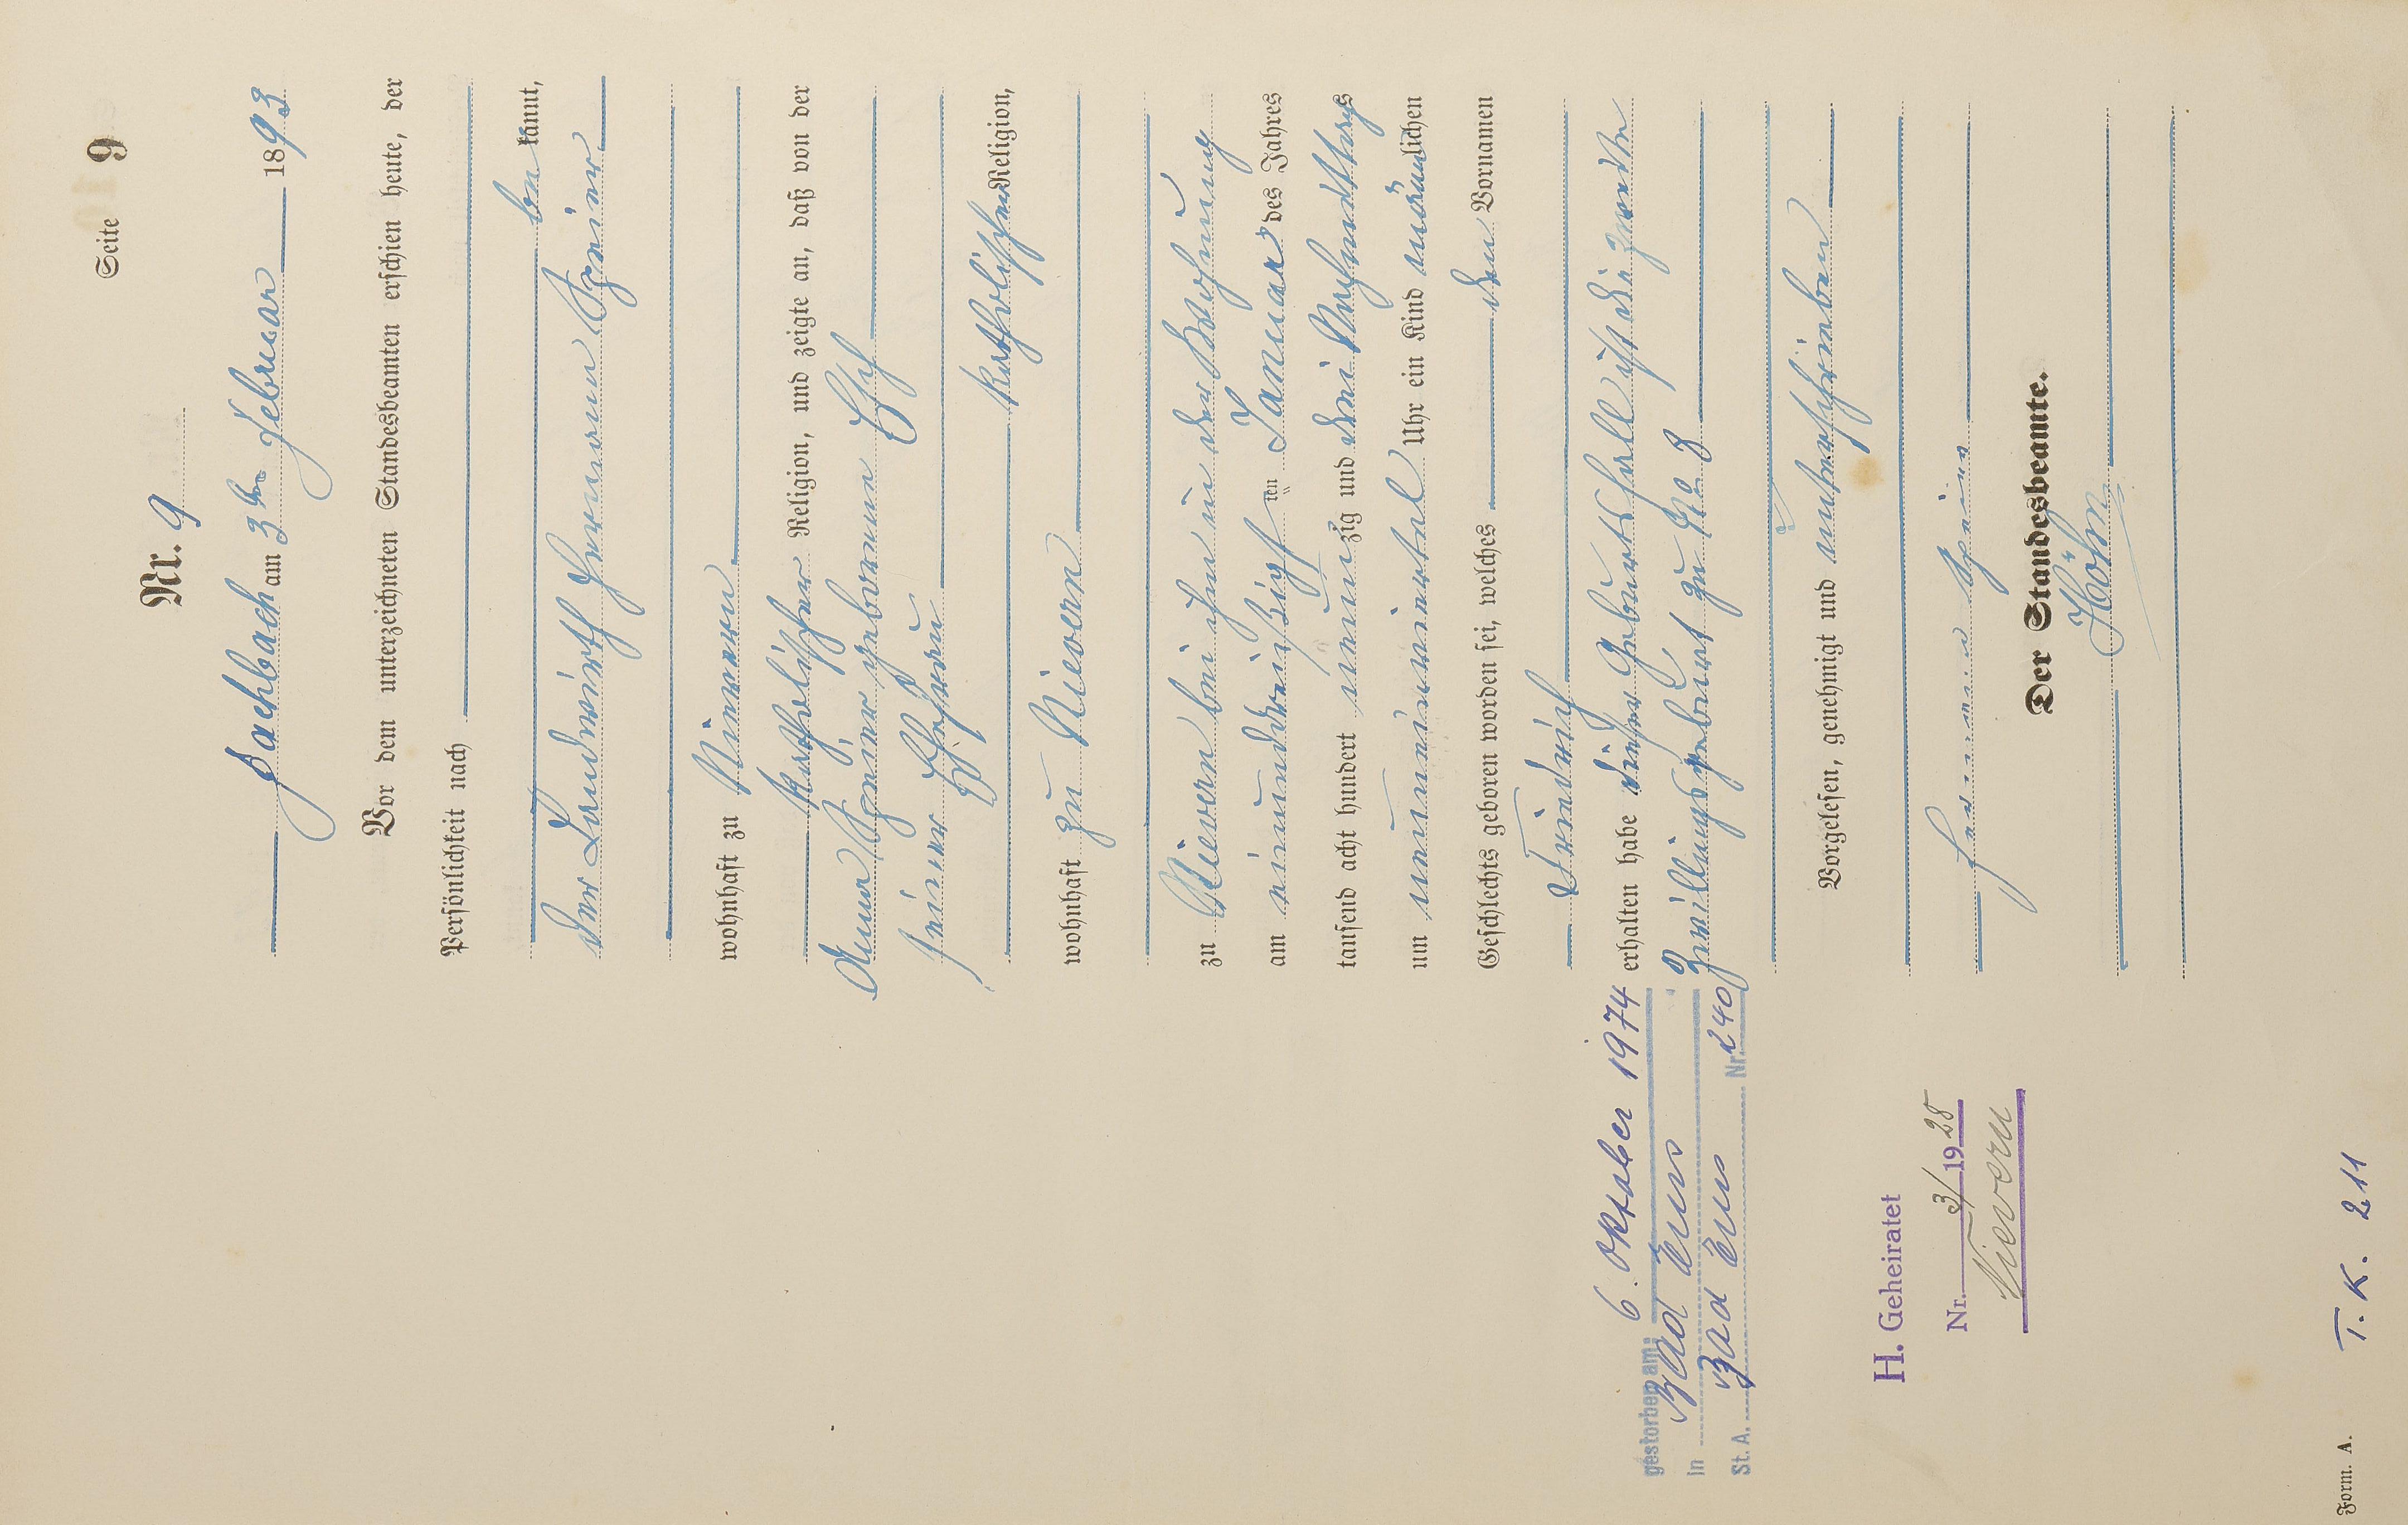 Seite 9
Nr. 9
Fachbach am 3ten Februar 1893
Vor dem unterzeichneten Standesbeamten erschien heute, der
Persönlichkeit nach
bekannt,
der Landwirth Hermann Speier
wohnhaft zu Nievern
katholischer Religion, und zeigte an, daß von der
Anna Speier geborenen Esch
seiner Ehefrau
katholischer Religion,
wohnhaft zu Nievern
zu Nievern bei ihm in der Wohnung
am einunddreißigsten Januar des Jahres
tausend acht hundert neunzig und drei Nachmittags
um neuneinviertel Uhr ein Kind männlichen
Geschlechts geboren worden sei, welches den Vornamen
Friedrich
erhalten habe dieser Geburtsfall ist die zweite
Zwillingsgeburt zu No 8
Vorgelesen, genehmigt und unterschrieben
Hermann Speier
Der Standesbeamte.
Höhn
gestorben am: 6. Oktober 1974
in Bad Ems
St. A. Bad Ems Nr. 240
H. Geheiratet
Nr. 3/1928
Nievern
T. K. 211
Form. A.